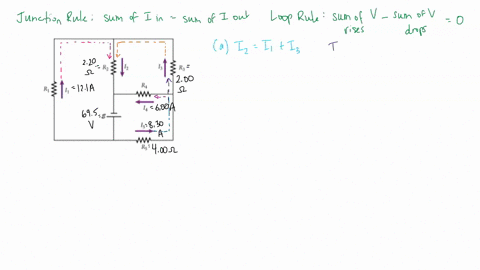 Junction Rule: sum of I in = sum of I out Loop Rule: sum of V rises - sum of V drops = 0
(a) I₂ = I₁ + I₃ I
2.20 Ω = R₂
I₂
I₃
R₃ = 2.00 Ω
R₁
I₁ = 12.1A
R₄
I₄ = 6.00 A
69.5 V = ε
I₅ = 8.30 A
R₅ = 4.00 Ω